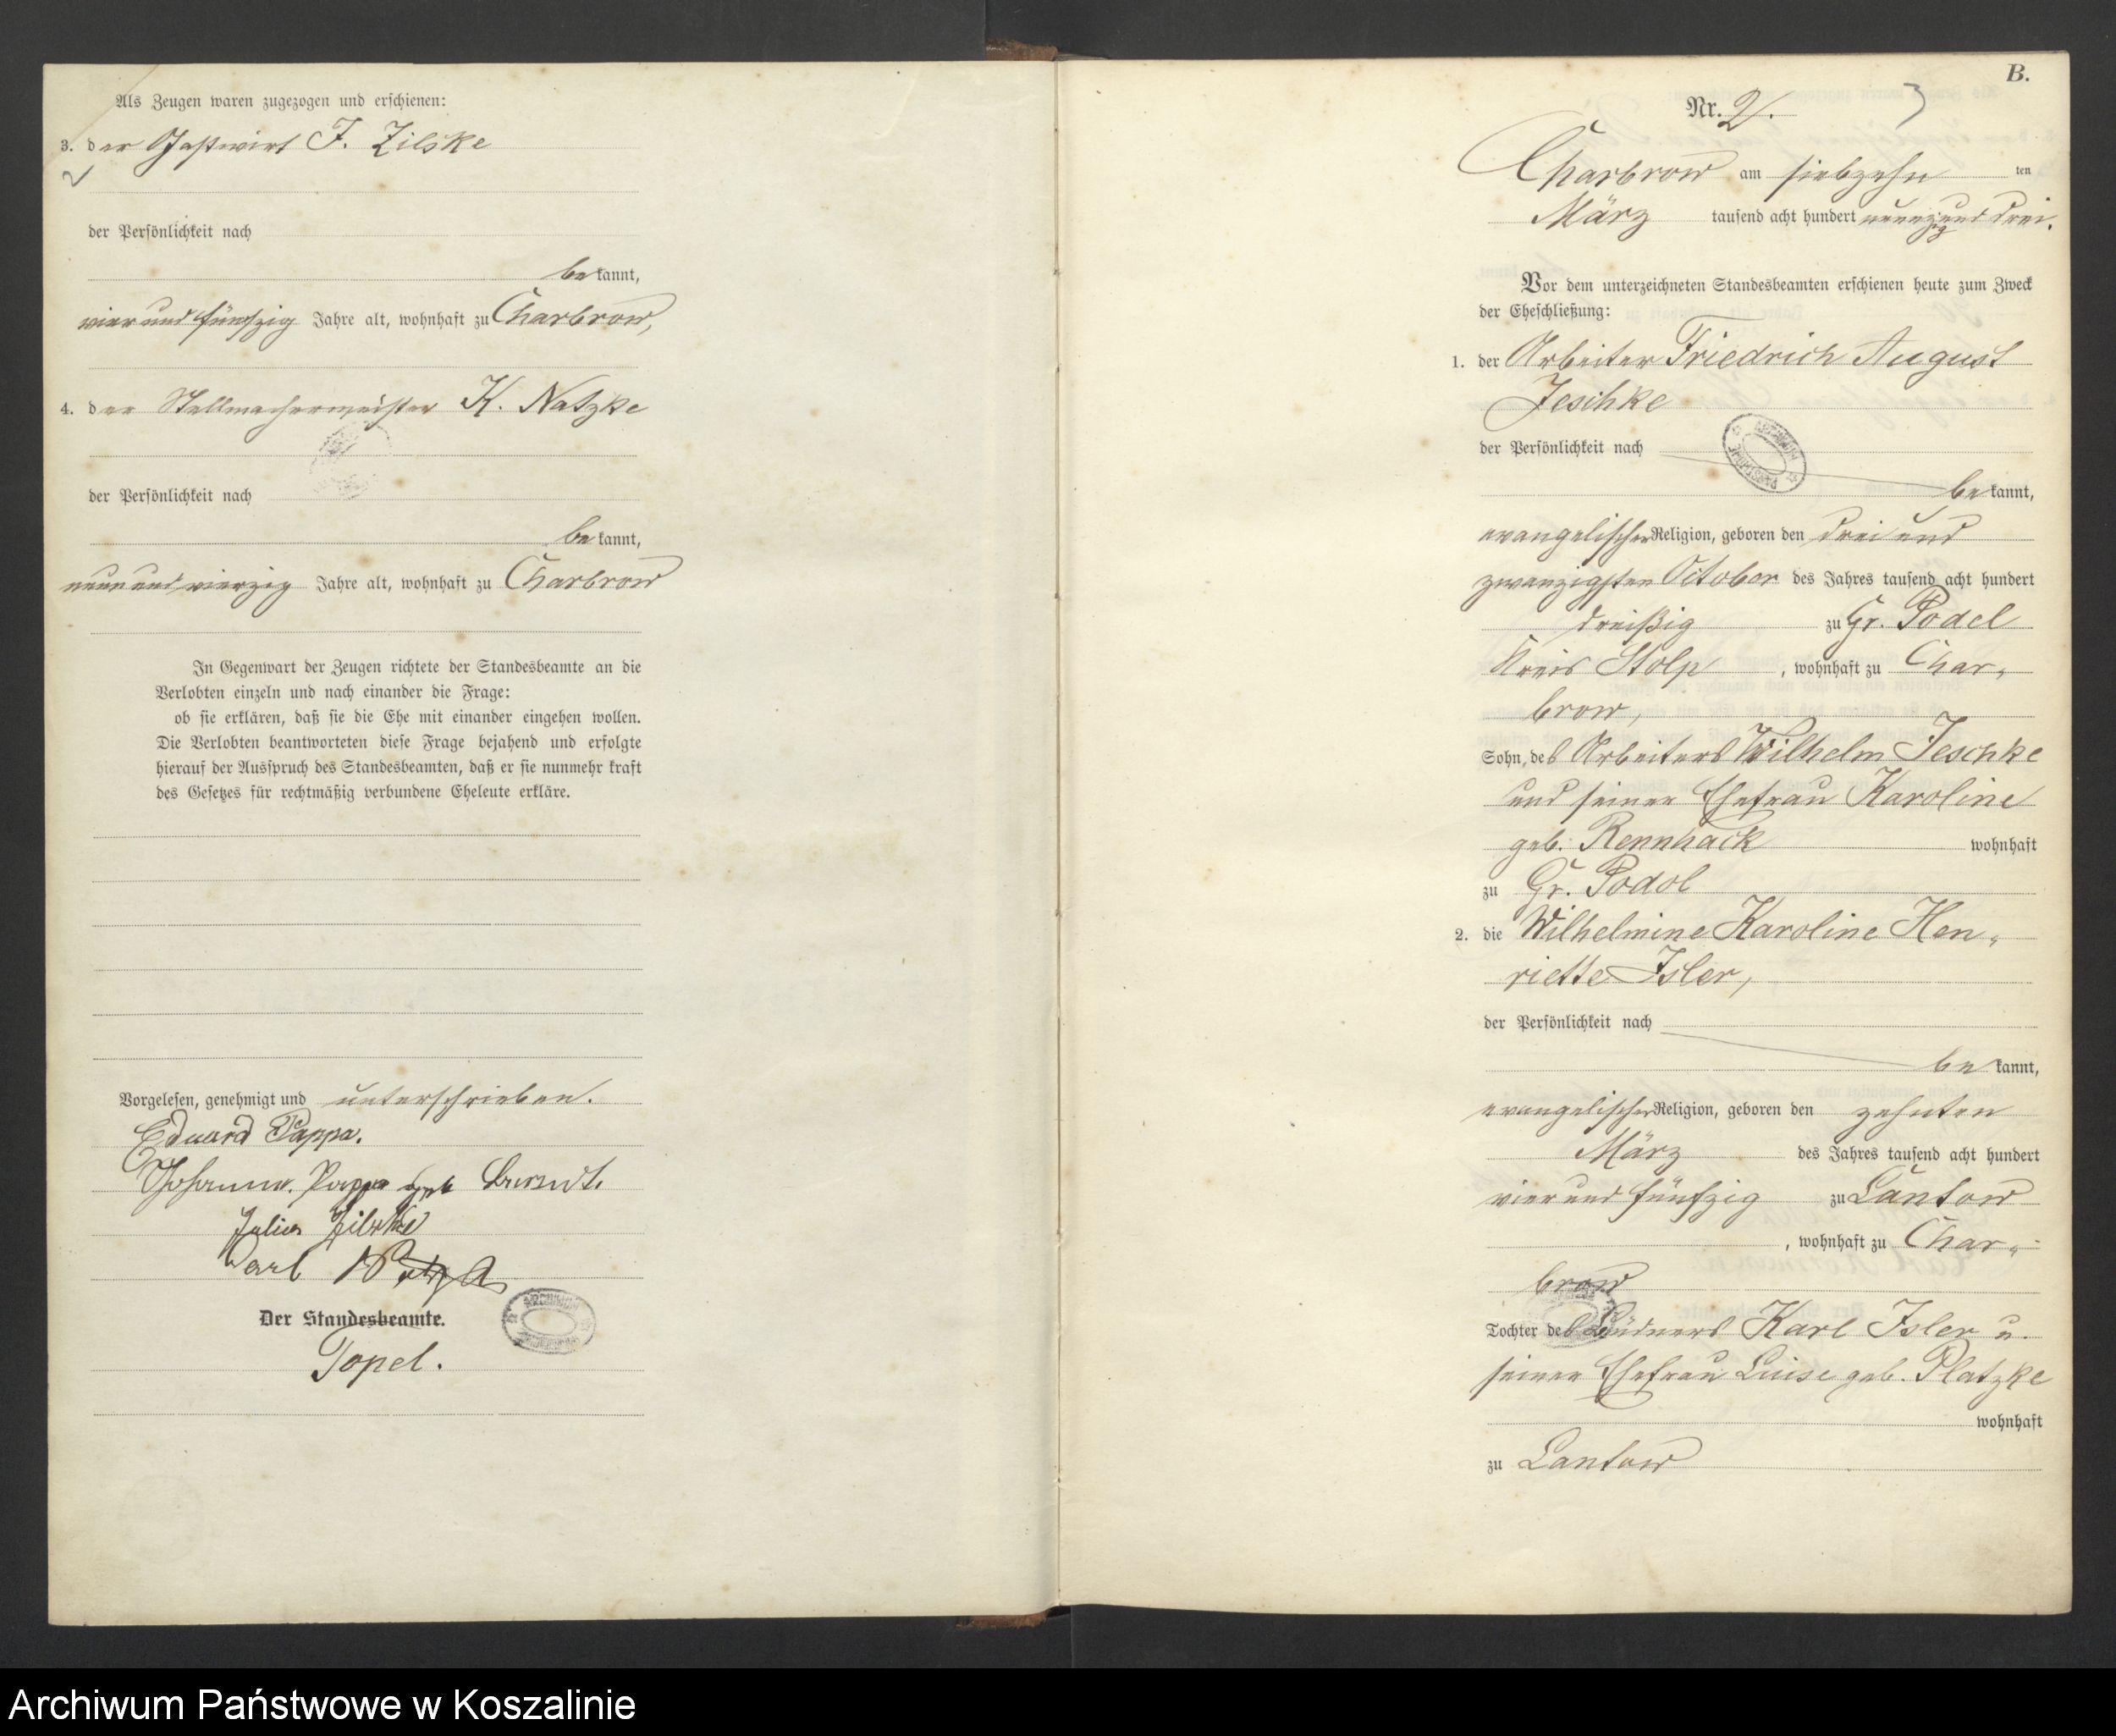 Als Zeugen waren zugezogen und erschienen:
3. der Gastwirt J. Zilske
2
der Persönlichkeit nach
be kannt,
vier und fünfzig Jahre alt, wohnhaft zu Charbrow,
4. der Stellmachermeister K. Natzke
der Persönlichkeit nach
be kannt,
neun und vierzig Jahre alt, wohnhaft zu Charbrow
In Gegenwart der Zeugen richtete der Standesbeamte an die
Verlobten einzeln und nach einander die Frage:
ob sie erklären, daß sie die Ehe mit einander eingehen wollen.
Die Verlobten beantworteten diese Frage bejahend und erfolgte
hierauf der Ausspruch des Standesbeamten, daß er sie nunmehr kraft
des Gesetzes für rechtmäßig verbundene Eheleute erkläre.
Vorgelesen, genehmigt und unterschrieben.
Eduard Pappa.
Johanna Pappa geb
Julius Zilske
Carl
Der Standesbeamte.
Topel.
B.
Nr. 2. 3
Charbrow am siebzehn ten
März tausend acht hundert neunzig und drei.
Vor dem unterzeichneten Standesbeamten erschienen heute zum Zweck
der Eheschließung:
1. der Arbeiter Friedrich August
Jeschke
der Persönlichkeit nach
be kannt,
evangelischer Religion, geboren den drei und
zwanzigsten October des Jahres tausend acht hundert
dreißig zu Gr. Podel
Kreis Stolp, wohnhaft zu Char-
brow,
Sohn des Arbeiters Wilhelm Jeschke
und seiner Ehefrau Karoline
geb. Rennhack wohnhaft
zu Gr. Podol
2. die Wilhelmine Karoline Hen-
riette Isler,
der Persönlichkeit nach
be kannt,
evangelischer Religion, geboren den zehnten
März des Jahres tausend acht hundert
vier und fünfzig zu Lantow
, wohnhaft zu Char-
brow
Tochter des Büdners Karl Isler u.
seiner Ehefrau Luise geb. Platzke
wohnhaft
zu Lantow
Archiwum Państwowe w Koszalinie